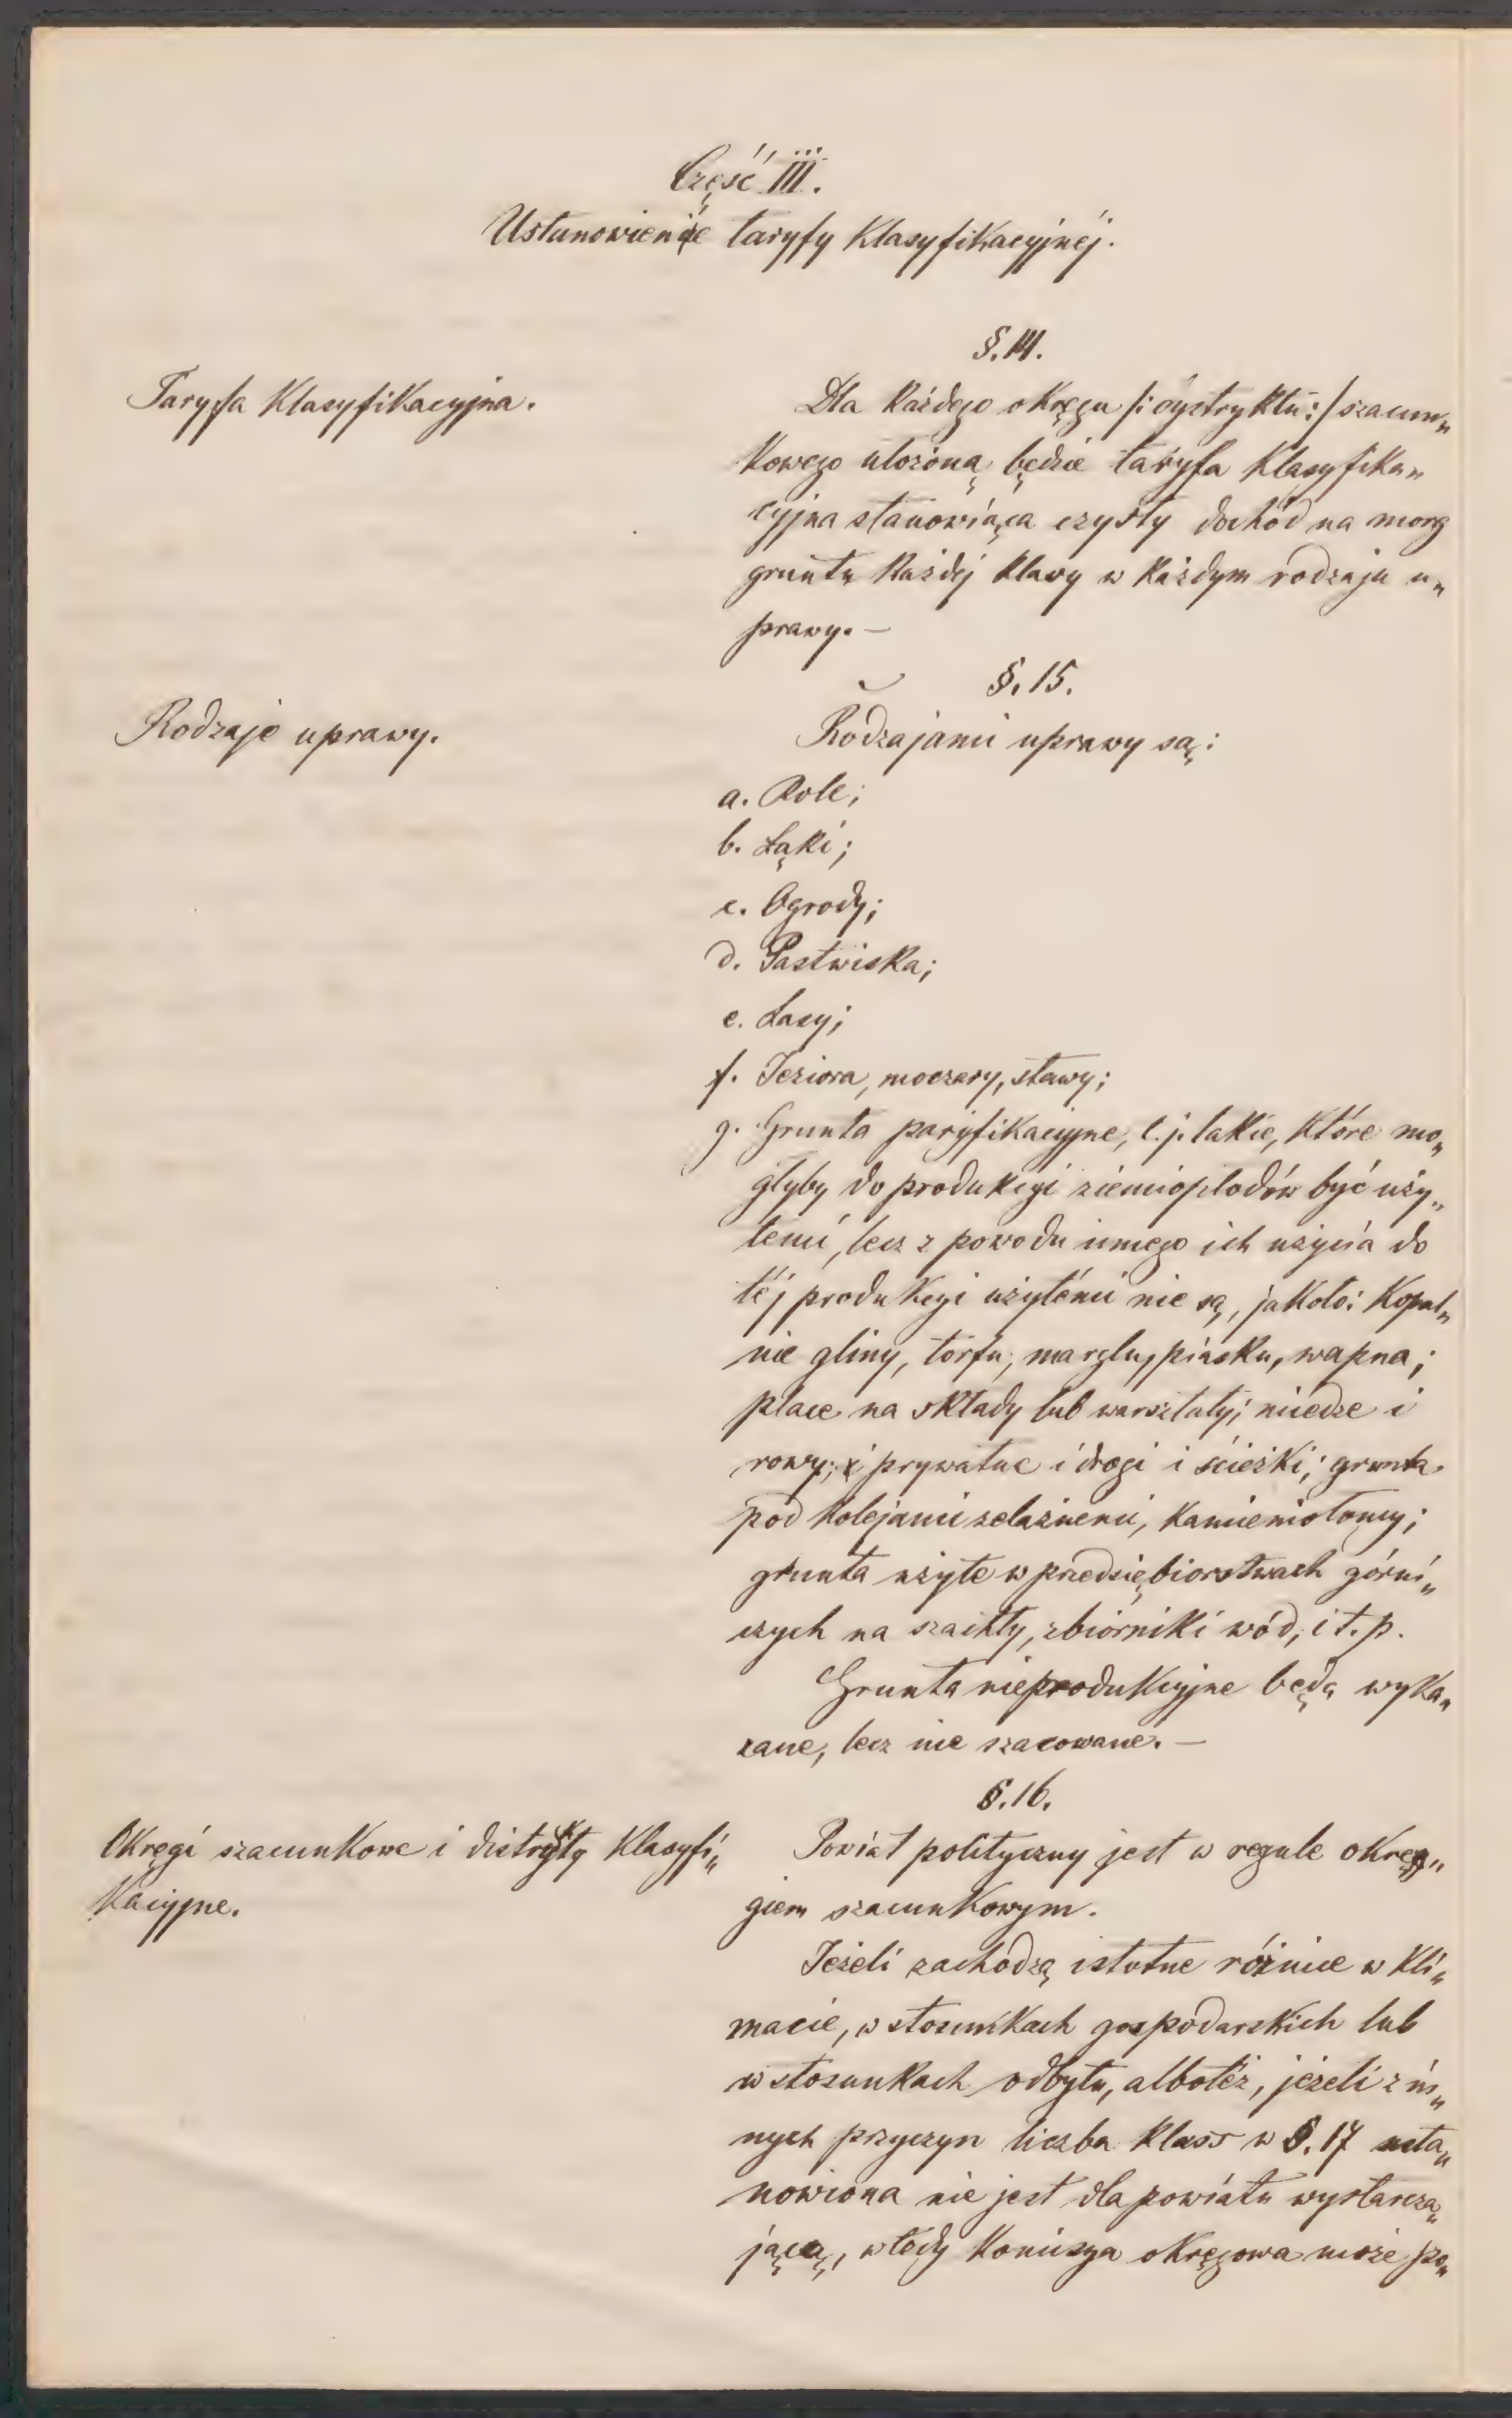 Część III.
Ustanowienie taryfy Klasyfikacyjnéj.
§. 14.
Taryfa Klasyfikacyjna.
Dla Każdego okręgu /: dystryktu :/ szacun„
Kowego ułożoną będzie taryfa Klasyfika„
cyjna stanowiąca czysty dochód na morg
gruntu Każdéj Klasy w Każdym rodzaju u„
prawy. —
§. 15.
Rodzaje uprawy.
Rodzajami uprawy są:
a. Role;
b. Łąki;
c. Ogrody;
d. Pastwiska;
e. Lasy;
f. Jeziora, moczary, stawy;
g. Grunta paryfikacyjne, t. j. takie, które mo„
głyby do produkcyi ziemiopłodów być uży„
temi, lecz z powodu innego ich użycia do
téj produkcyi użytémi nie są, jakoto: Kopal„
nie gliny, torfu, marglu, piasku, wapna;
place na składy lub warsztaty; miedze i
rowy; prywatne drogi i ścieżki; grunta
pod Kolejami żelaznemi, Kamieniołomy;
grunta użyte w przedsiębiorstwach górni„
czych na szachty, zbiorniki wód, i t. p.
Grunta nieprodukcyjne będą wyka„
zane, lecz nie szacowane. —
§. 16.
Okręgi szacunkowe i distrykty Klasyfi„
Kacyjne.
Powiat polityczny jest w regule okrę„
giem szacunkowym.
Jeżeli zachodzą istotne różnice w Kli„
macie, w stosunkach gospodarskich lub
w stosunkach odbytu, albotéż, jeżeli z in„
nych przyczyn liczba Klass w §. 17 usta„
nowiona nie jest dla powiatu wystarcza„
jącą, wtedy Komisya okręgowa może po„